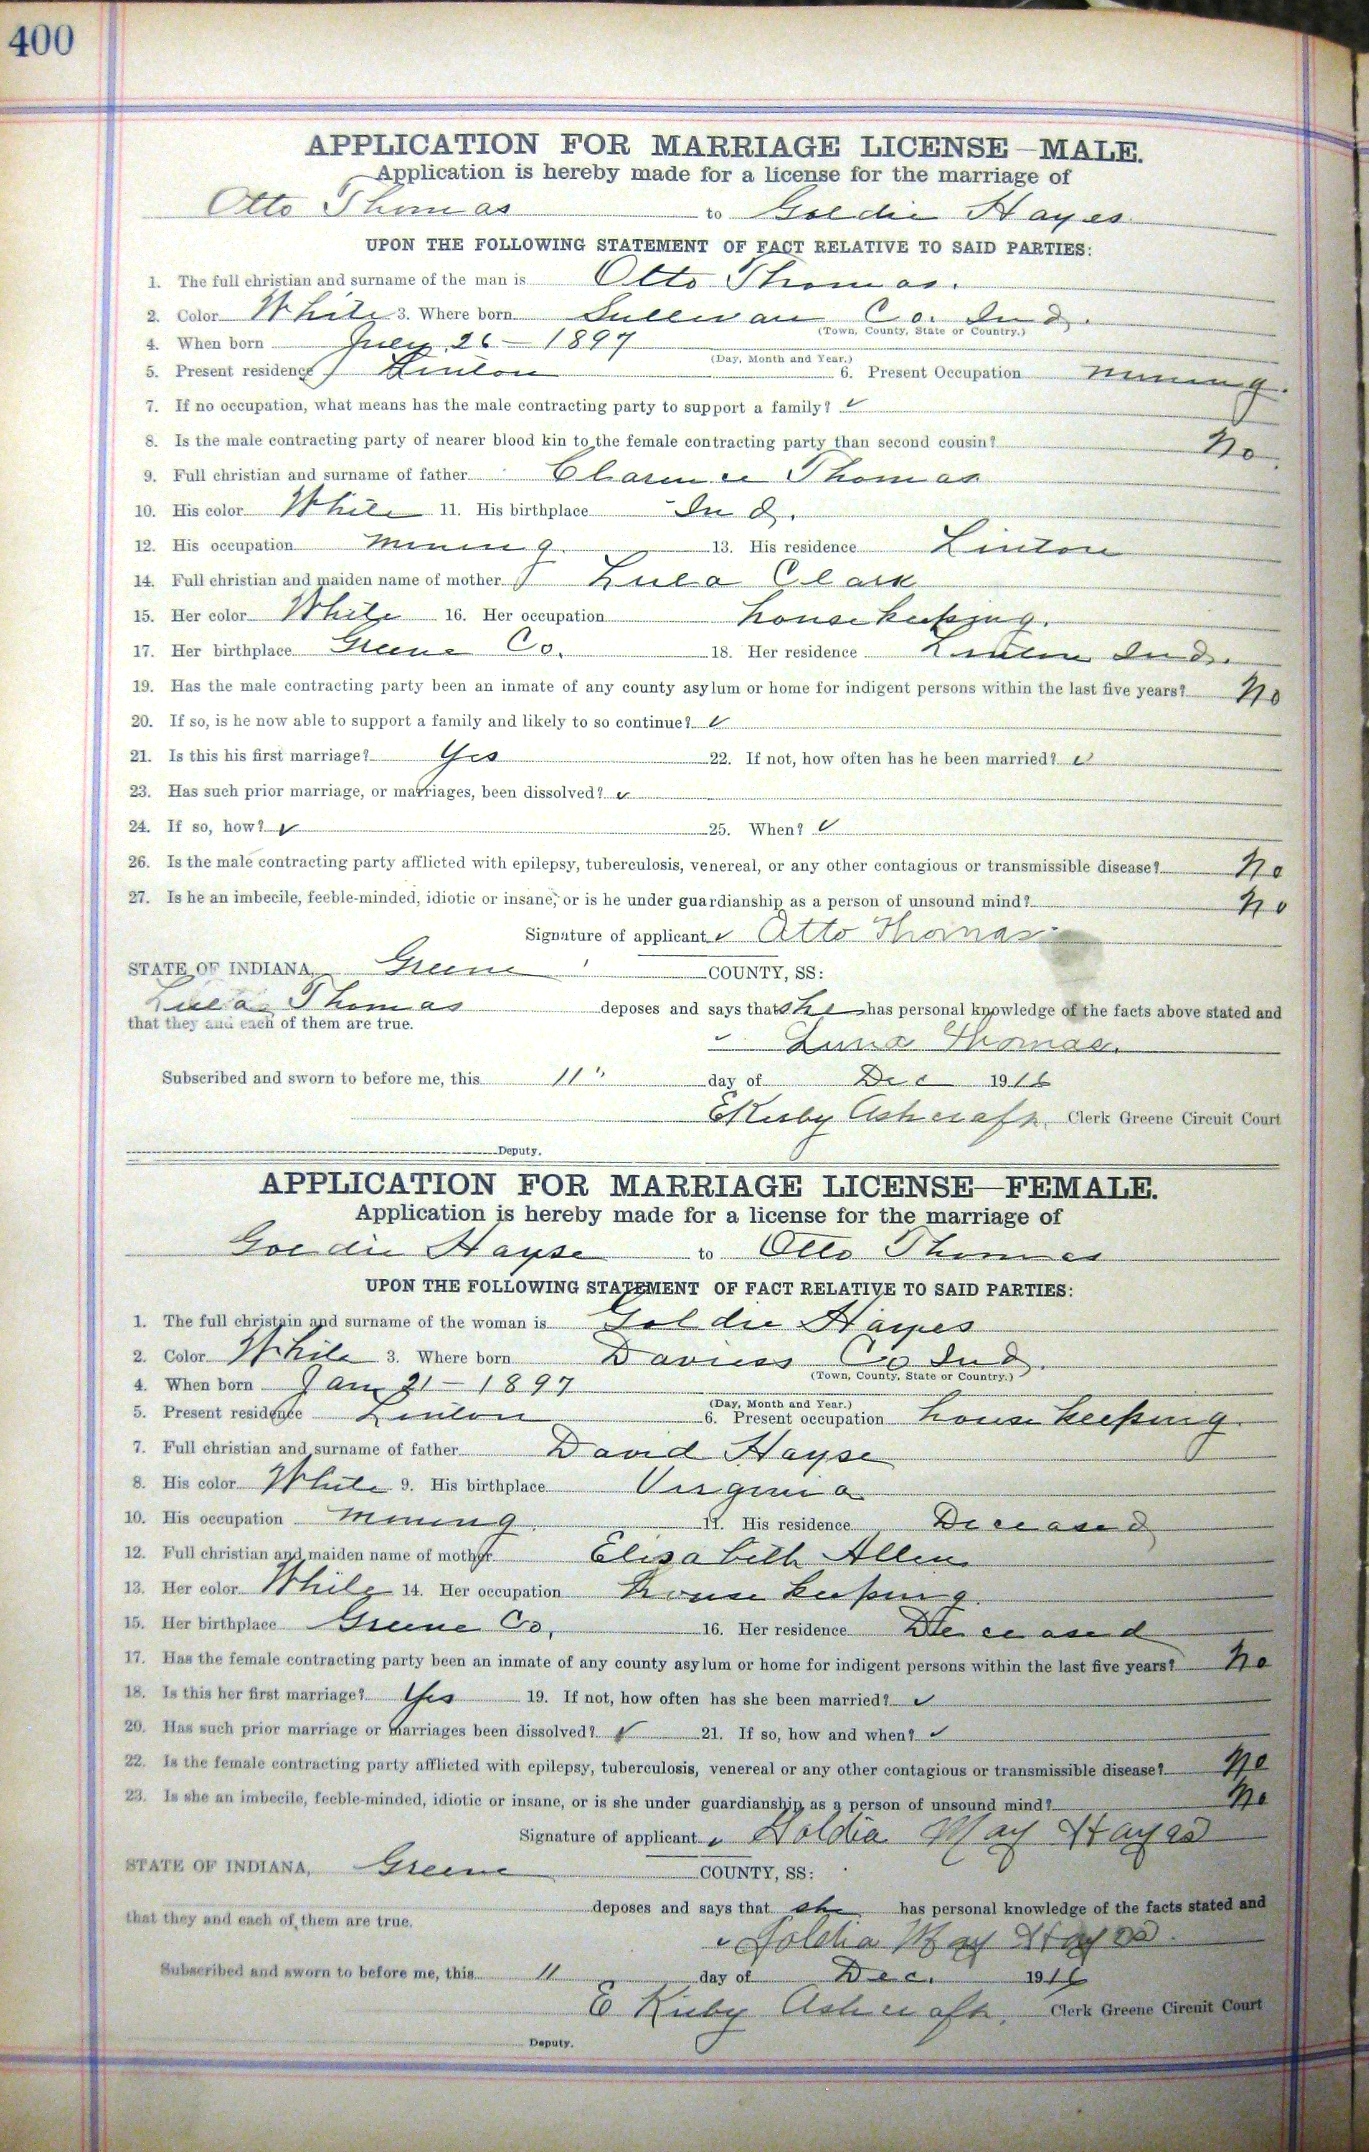 400
APPLICATION FOR MARRIAGE LICENSE—MALE.
Application is hereby made for a license for the marriage of
Otto Thomas to Goldie Hayes
UPON THE FOLLOWING STATEMENT OF FACT RELATIVE TO SAID PARTIES:
1. The full christian and surname of the man is Otto Thomas.
2. Color White 3. Where born Sullivan Co. Ind.
(Town, County, State or Country.)
4. When born July 26 - 1897
(Day, Month and Year.)
5. Present residence Linton 6. Present Occupation mining.
7. If no occupation, what means has the male contracting party to support a family? ✓
8. Is the male contracting party of nearer blood kin to the female contracting party than second cousin? No.
9. Full christian and surname of father Clarence Thomas
10. His color White 11. His birthplace Ind.
12. His occupation mining 13. His residence Linton
14. Full christian and maiden name of mother Lula Clark
15. Her color White 16. Her occupation housekeeping.
17. Her birthplace Greene Co. 18. Her residence Linton Ind.
19. Has the male contracting party been an inmate of any county asylum or home for indigent persons within the last five years? No
20. If so, is he now able to support a family and likely to so continue? ✓
21. Is this his first marriage? Yes 22. If not, how often has he been married? ✓
23. Has such prior marriage, or marriages, been dissolved? ✓
24. If so, how? ✓ 25. When? ✓
26. Is the male contracting party afflicted with epilepsy, tuberculosis, venereal, or any other contagious or transmissible disease? No
27. Is he an imbecile, feeble-minded, idiotic or insane, or is he under guardianship as a person of unsound mind? No
Signature of applicant ✓ Otto Thomas
STATE OF INDIANA, Greene COUNTY, SS:
Lula Thomas deposes and says that she has personal knowledge of the facts above stated and
that they and each of them are true.
✓ Luna Thomas.
Subscribed and sworn to before me, this 11" day of Dec 1916
E Kirby Ashcraft, Clerk Greene Circuit Court
Deputy.
APPLICATION FOR MARRIAGE LICENSE—FEMALE.
Application is hereby made for a license for the marriage of
Goldie Hayse to Otto Thomas
UPON THE FOLLOWING STATEMENT OF FACT RELATIVE TO SAID PARTIES:
1. The full christain and surname of the woman is Goldie Hayes
2. Color White 3. Where born Daviess Co Ind.
(Town, County, State or Country.)
4. When born Jan 21 - 1897
(Day, Month and Year.)
5. Present residence Linton 6. Present occupation housekeeping.
7. Full christian and surname of father David Hayse
8. His color White 9. His birthplace Virginia
10. His occupation mining 11. His residence Deceased
12. Full christian and maiden name of mother Elisabeth Allen
13. Her color White 14. Her occupation housekeeping.
15. Her birthplace Greene Co. 16. Her residence Deceased
17. Has the female contracting party been an inmate of any county asylum or home for indigent persons within the last five years? No
18. Is this her first marriage? Yes 19. If not, how often has she been married? ✓
20. Has such prior marriage or marriages been dissolved? ✓ 21. If so, how and when? ✓
22. Is the female contracting party afflicted with epilepsy, tuberculosis, venereal or any other contagious or transmissible disease? No
23. Is she an imbecile, feeble-minded, idiotic or insane, or is she under guardianship as a person of unsound mind? No
Signature of applicant ✓ Goldia May Hayes
STATE OF INDIANA, Greene COUNTY, SS:
deposes and says that she has personal knowledge of the facts stated and
that they and each of them are true.
✓ Goldia May Hayes
Subscribed and sworn to before me, this 11 day of Dec. 1916
E Kirby Ashcraft, Clerk Greene Circuit Court
Deputy.